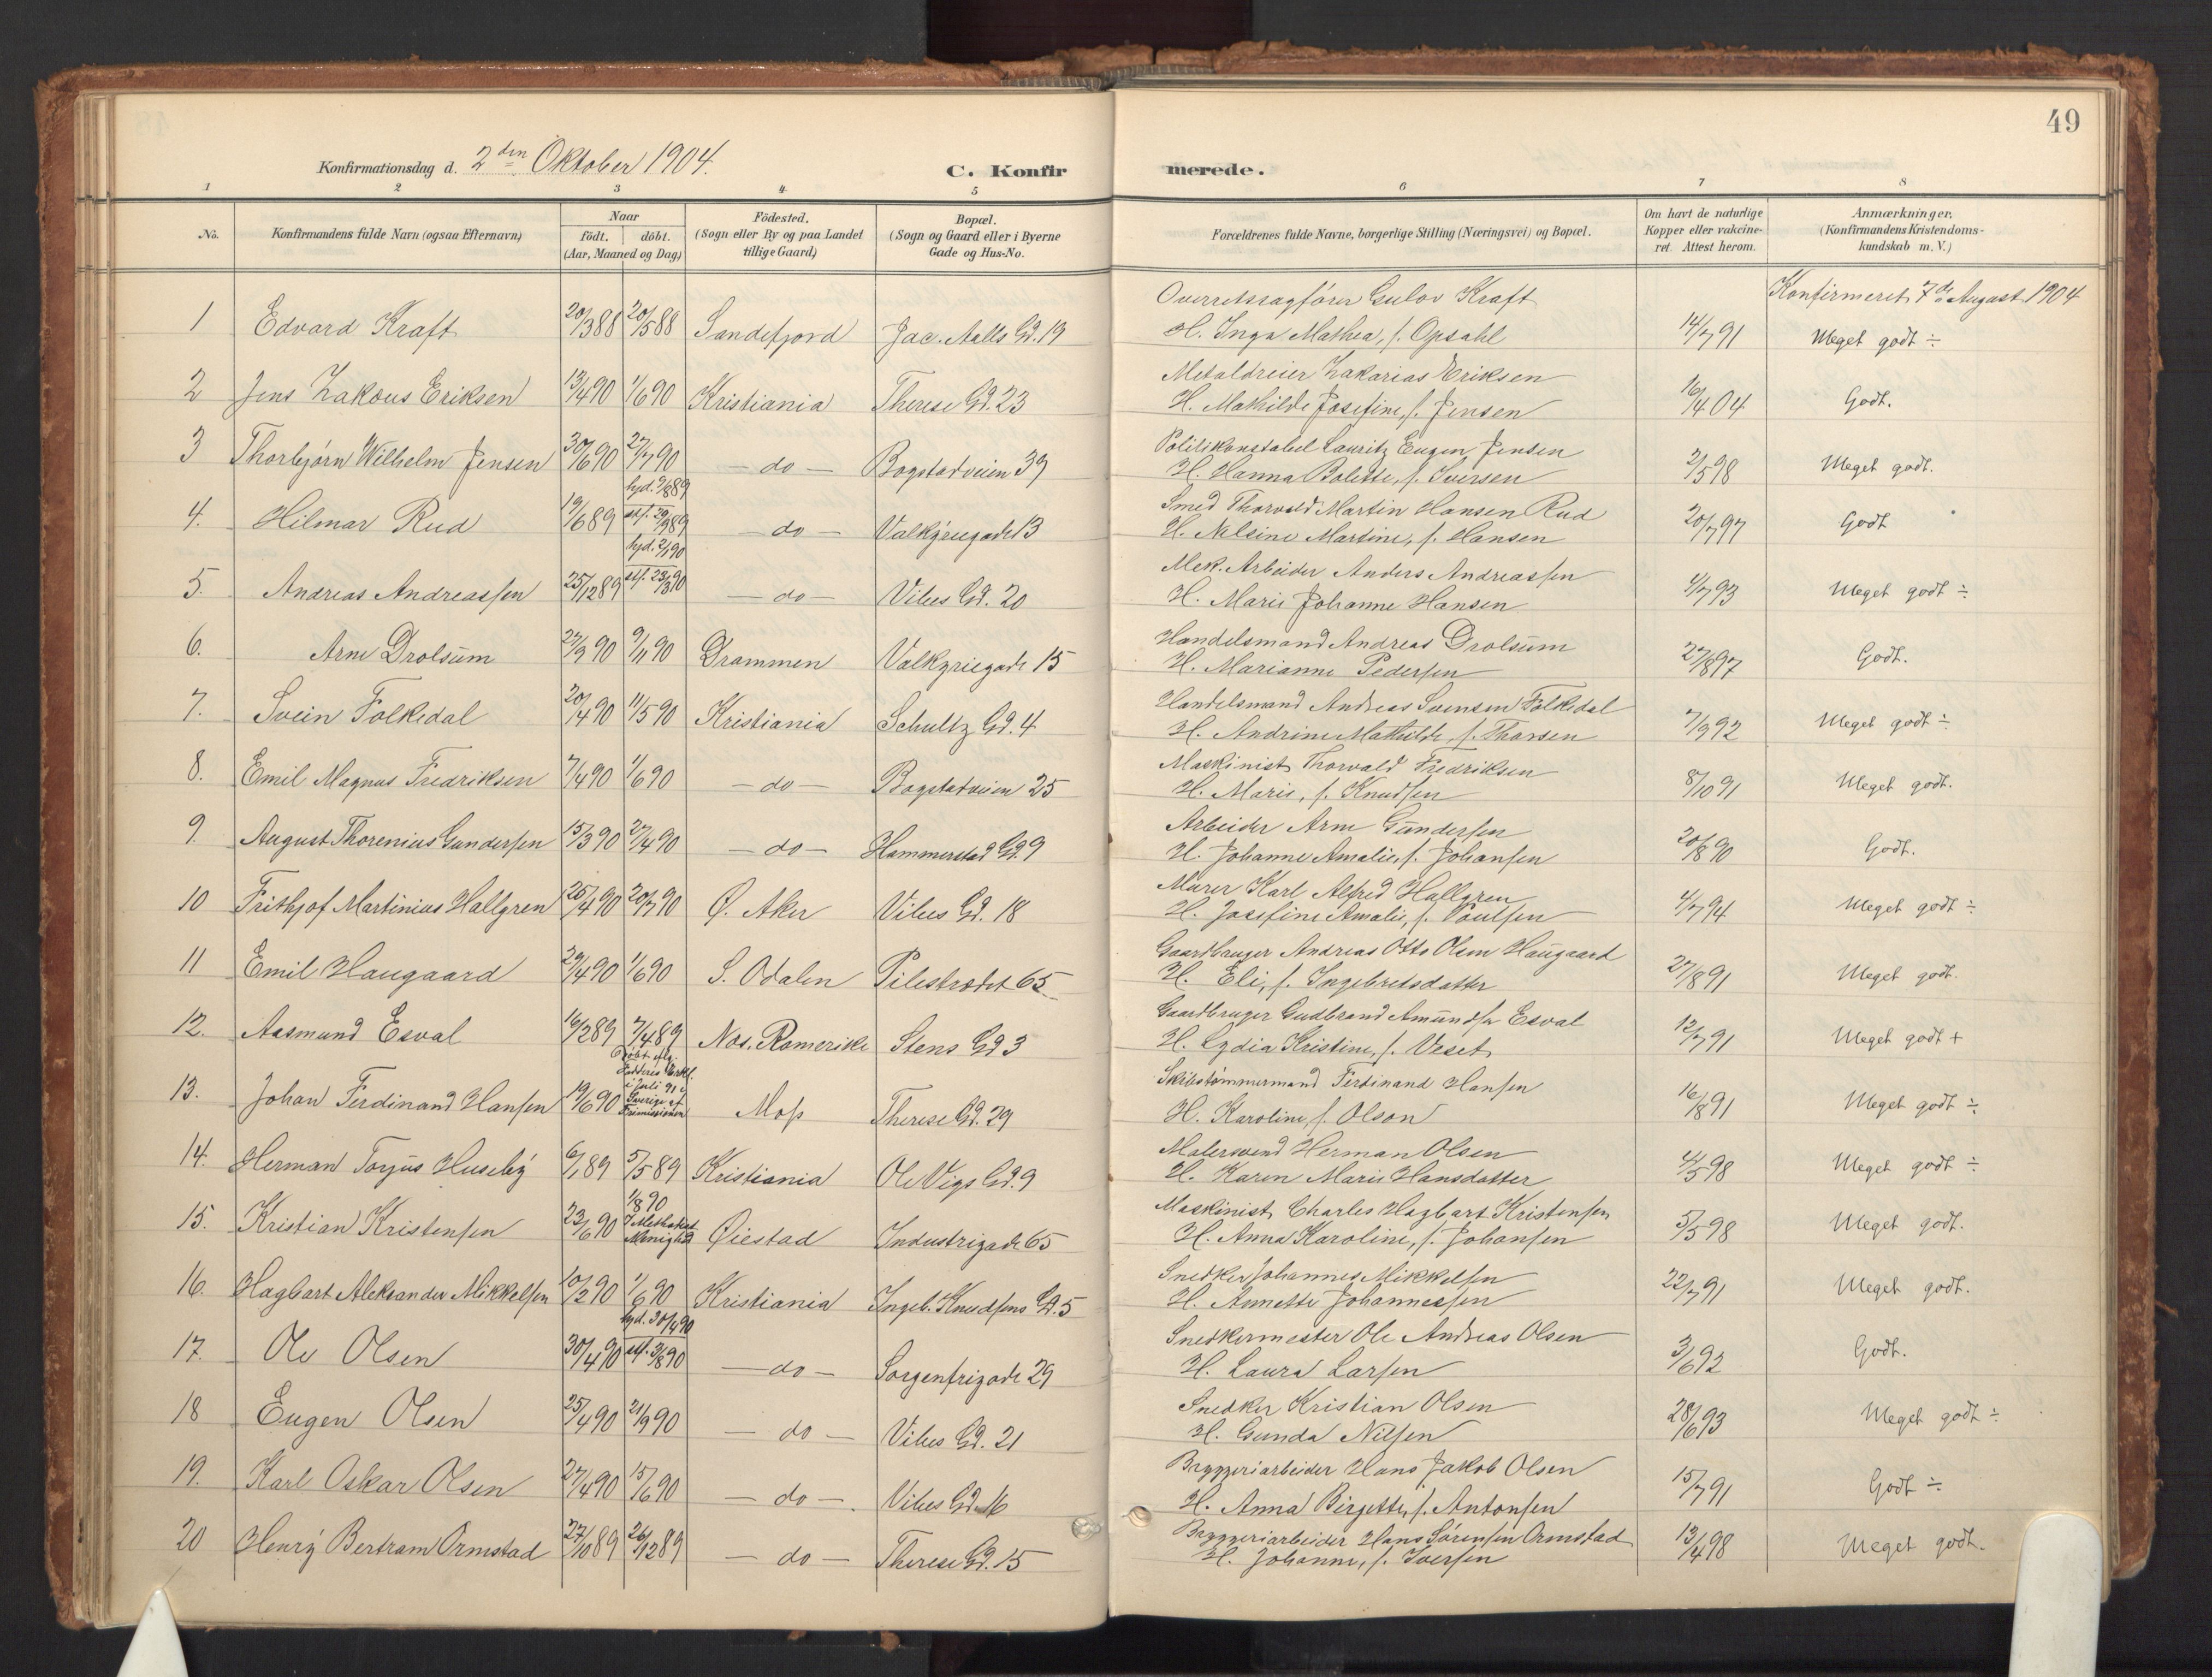 49
Konfirmationsdag d. 2den Oktober 1904.
C. Konfirmerede.
1 2 3 4 5 6 7 8
No.
Konfirmandens fulde Navn (ogsaa Efternavn)
Naar
födt. döbt.
(Aar, Maaned og Dag)
Födested.
(Sogn eller By og paa Landet
tillige Gaard)
Bopæl.
(Sogn og Gaard eller i Byerne
Gade og Hus-No.
Forældrenes fulde Navne, borgerlige Stilling (Næringsvei) og Bopæl.
Om havt de naturlige
Kopper eller vakcine-
ret. Attest herom.
Anmærkninger.
(Konfirmandens Kristendoms-
kundskab m. V.)
1 Edvard Kraft 20/3 88 20/5 88 Sandefjord Jac. Aalls Gd. 19 Overretssagfører Gulov Kraft
H. Inga Mathea, f. Opsahl 14/7 91 Konfirmeret 7de August 1904
Meget godt ÷
2 Jens Zakæus Eriksen 13/4 90 1/6 90 Kristiania Therese Gd. 23 Metaldreier Zakarias Eriksen
H. Mathilde Josefine, f. Jensen 16/4 04 Godt.
3 Thorbjørn Wilhelm Jensen 30/6 90 27/7 90 — do — Bogstadveien 39 Politikonstabel Lauritz Eugen Jensen
H. Hanna Bolette, f. Iversen 2/5 98 Meget godt.
4. Hilmar Rud 19/6 89 hjd. 9/8 89
stf. 29/9 89 — do — Valkyriegade 13 Smed Thorvald Martin Hansen Rud
H. Nelsine Martine, f. Hansen 20/7 97 Godt
5. Andreas Andreassen 25/12 89 hjd. 2/1 90
stf. 23/3 90 — do — Vibes Gd. 20 Mek. Arbeider Anders Andreassen
H. Marie Johanne Hansen 4/7 93 Meget godt ÷
6. Arne Drolsum 27/9 90 9/11 90 Drammen Valkyriegade 15 Handelsmand Andreas Drolsum
H. Marianne Pedersen 27/8 97 Godt.
7. Svein Folkedal 20/4 90 11/5 90 Kristiania Schultz Gd. 4 Handelsmand Andreas Svensen Folkedal
H. Andrine Mathilde, f. Thorsen 7/9 92 Meget godt ÷
8. Emil Magnus Fredriksen 7/4 90 1/6 90 — do — Bogstadveien 25 Maskinist Thorvald Fredriksen
H. Marie, f. Knudsen 8/10 91 Meget godt.
9. August Thorenius Gundersen 15/3 90 27/4 90 — do — Hammerstad Gd. 9 Arbeider Arne Gundersen
H. Johanne Amalie, f. Johansen 20/8 90 Godt.
10 Frithjof Martinius Hallgren 25/4 90 20/7 90 Ø. Aker Vibes Gd. 18 Murer Karl Alfred Hallgren
H. Josefine Amalie, f. Poulsen 4/7 94 Meget godt ÷
11 Emil Haugaard 29/4 90 1/6 90 S. Odalen Pilestrædet 65 Gaardbruger Andreas Otto Olsen Haugaard
H. Eli, f. Ingebretsdatter 27/8 91 Meget godt.
12. Aasmund Esval 16/2 89 7/4 89 Nes. Romerike Stens Gd 3 Gaardbruger Gudbrand Amundsen Esval
H. Lydia Kristine, f. Veset 12/7 91 Meget godt +
13. Johan Ferdinand Hansen 19/6 90 Döbt
i Juli 91 i
Sverige af
Frimissionen Moss Therese Gd. 29 Skibstømmermand Ferdinand Hansen
H. Karoline, f. Olson 16/8 91 Meget godt ÷
14. Herman Torjus Huseby 6/1 89 5/5 89 Kristiania Ole Vigs Gd. 9 Malersvend Herman Olsen
H. Karen Marie Hansdatter 4/5 98 Meget godt ÷
15. Kristian Kristensen 23/6 90 1/8 90
I Methodist
Menighed Øiestad Industrigade 65 Maskinist Charles Hagbart Kristensen
H. Anna Karoline, f. Johansen 5/5 98 Meget godt.
16. Hagbart Aleksander Mikkelsen 10/2 90 1/6 90 Kristiania Ingeb. Knudsens Gd. 5 Snedker Johannes Mikkelsen
H. Annette Johannessen 22/7 91 Meget godt.
17. Ole Olsen 30/4 90 hjd. 30/4 90
stf. 3/8 90 — do — Sorgenfrigade 29 Snedkermester Ole Andreas Olsen
H. Laura Larsen 3/6 92 Godt.
18 Eugen Olsen 25/4 90 21/9 90 — do — Vibes Gd. 21 Snedker Kristian Olsen
H. Gunda Nilsen 28/6 93 Meget godt ÷
19. Karl Oskar Olsen 27/4 90 15/6 90 — do — Vibes Gd. 16 Bryggeriarbeider Hans Jakob Olsen
H. Anna Birgette, f. Antonsen 15/7 91 Godt ÷
20 Henry Bertram Ormstad 27/10 89 26/12 89 — do — Therese Gd. 15 Bryggeriarbeider Hans Sörensen Ormstad
H. Johanne, f. Iversen 13/4 98 Meget godt.